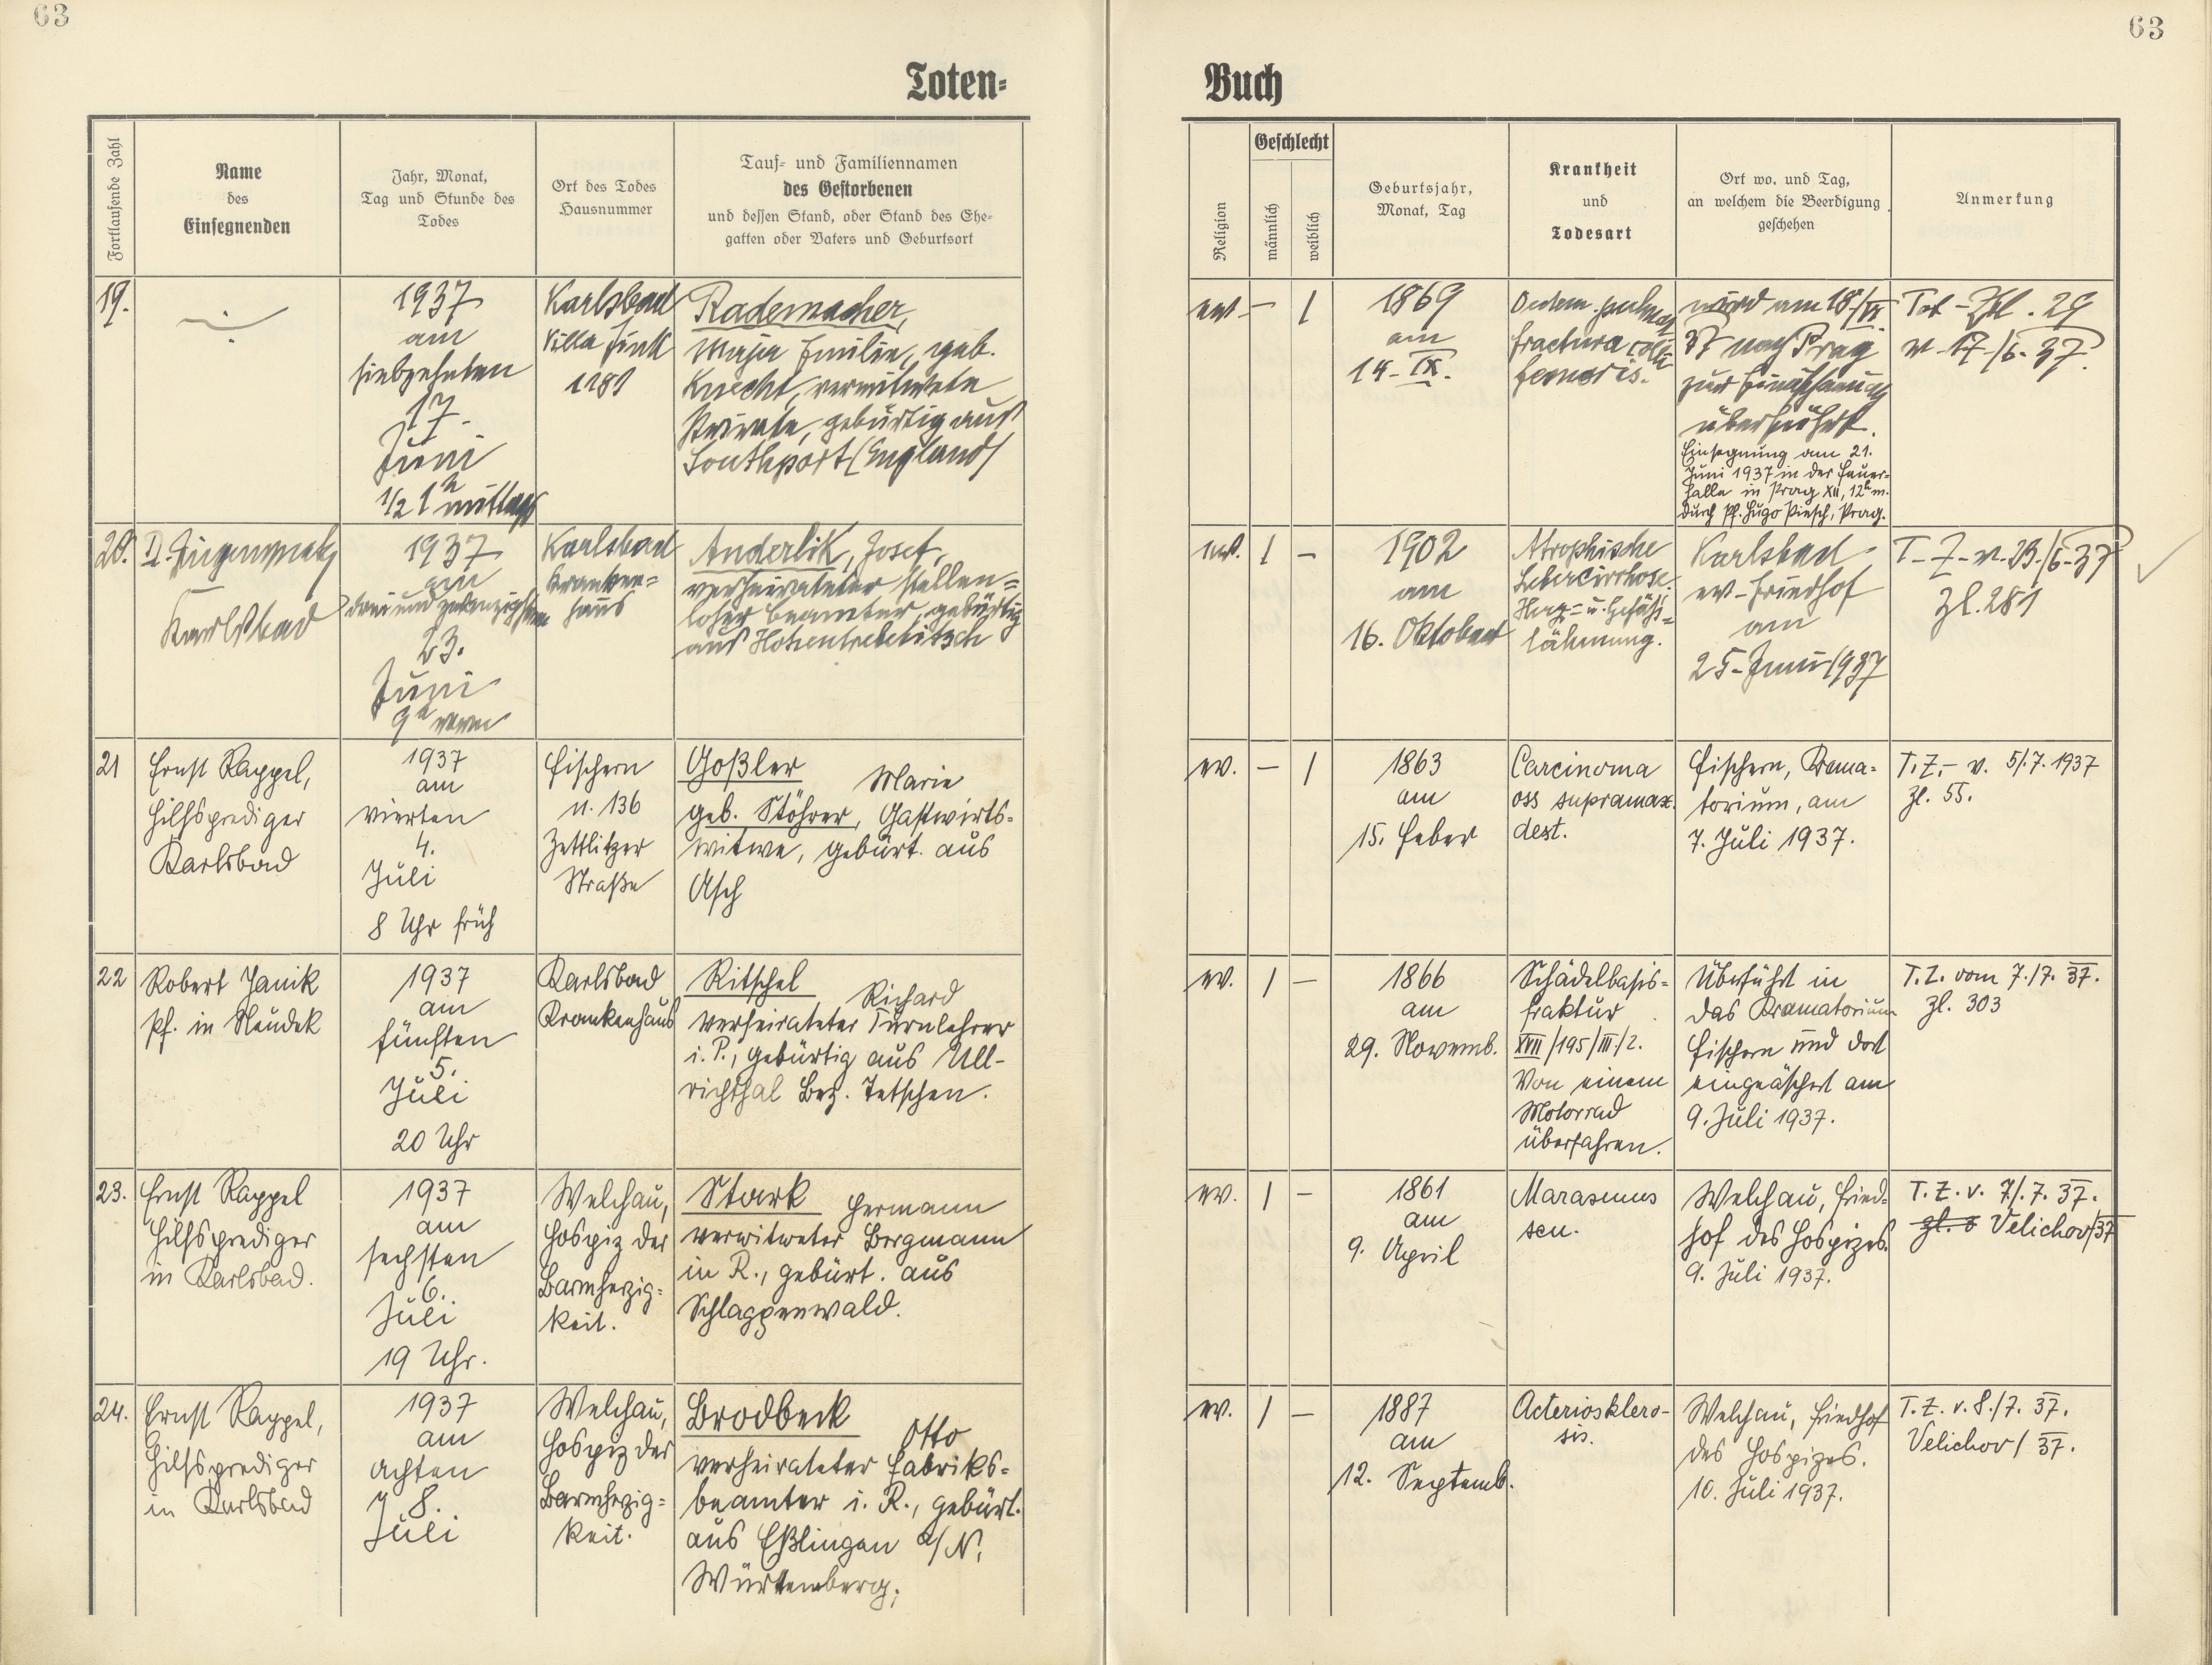 63
63
Toten-
Buch
Fortlaufende Zahl
Name
des
Einsegnenden
Jahr, Monat,
Tag und Stunde des
Todes
Ort des Todes
Hausnummer
Tauf- und Familiennamen
des Gestorbenen
und dessen Stand, oder Stand des Ehe-
gatten oder Vaters und Geburtsort
Religion
Geschlecht
männlich
weiblich
Geburtsjahr,
Monat, Tag
Krankheit
und
Todesart
Ort wo, und Tag,
an welchem die Beerdigung
geschehen
Anmerkung
19.
1937
am
siebzehnten
17.
Juni
1/2 1 h mittags
Karlsbad
Villa Fink
1181
Rademacher,
Emilie, geb.
Knecht, verwitwete
Private, gebürtig aus
Southport (England)
ev.
—
1
1869
am
14. IX.
fractura colli
femoris.
wird am 18./VI.
37 nach Prag
zur Einäscherung
überführt.
Einsegnung am 21.
Juni 1937 in der Feuer-
halle in Prag XII, 12h m.
durch Pf. Hugo Piesch, Prag.
Tot-Zhl. 29
v. 17./6. 37.
20.
Karlsbad
1937
am
dreiundzwanzigsten
23.
Juni
9h vorm
Karlsbad
Kranken=
haus
Anderlik, Josef,
verheirateter stellen=
loser Beamter, gebürtig
aus Hohentrebetitsch
ev.
1
–
1902
am
16. Oktober
Atrophische
Lebercirrhose.
Herz- u. Gefäß=
lähmung.
Karlsbad
ev. Friedhof
am
25. Juni 1937
T. Z. v. 23./6. 37
Zl. 281
21
Ernst Rappel,
Hilfsprediger
Karlsbad
1937
am
vierten
4.
Juli
8 Uhr früh
Fischern
n. 136
Zettlitzer
Straße
Goßler
Marie
geb. Stöhrer, Gastwirts=
witwe, gebürt. aus
Asch
ev.
—
1
1863
am
15. Feber
Carcinoma
oss supramax.
dext.
Fischern, Krema=
torium, am
7. Juli 1937.
T. Z. – v. 5/.7. 1937
Zl. 55.
22
Robert Janik
Pf. in Neudek
1937
am
fünften
5.
Juli
20 Uhr
Karlsbad
Krankenhaus
Ritschel
Richard
verheirateter Turnlehrer
i. P., gebürtig aus Ull-
richsthal Bez. Tetschen.
ev.
1
—
1866
am
29. Novemb.
Schädelbasis=
fraktur
XVII/195/III/2.
Von einem
Motorrad
überfahren.
Überführt in
das Krematorium
Fischern und dort
eingeäschert am
9. Juli 1937.
T. Z. vom 7./7. 37.
Zl. 303
23.
Ernst Rappel
Hilfsprediger
in Karlsbad.
1937
am
sechsten
6.
Juli
19 Uhr.
Welchau,
Hospiz der
Barmherzig=
keit.
Stark
Hermann
verwitweter Bergmann
in R., gebürt. aus
Schlaggenwald.
ev.
1
–
1861
am
9. April
Marasmus
sen.
Welchau, Fried=
hof des Hospizes.
9. Juli 1937.
T. Z. v. 7/.7. 37.
Velichov/37
24.
Ernst Rappel,
Hilfsprediger
in Karlsbad
1937
am
achten
8.
Juli
Welchau,
Hospiz der
Barmherzig=
keit.
Brodbeck
Otto
verheirateter Fabriks=
beamter i. R., gebürt.
aus Eßlingen a/N.
Württemberg;
ev.
1
—
1887
am
12. Septemb.
Acterioskleros-
sis.
Welchau, Friedhof
des Hospizes.
10. Juli 1937.
T. Z. v. 8./7. 37.
Velichov/ 37.